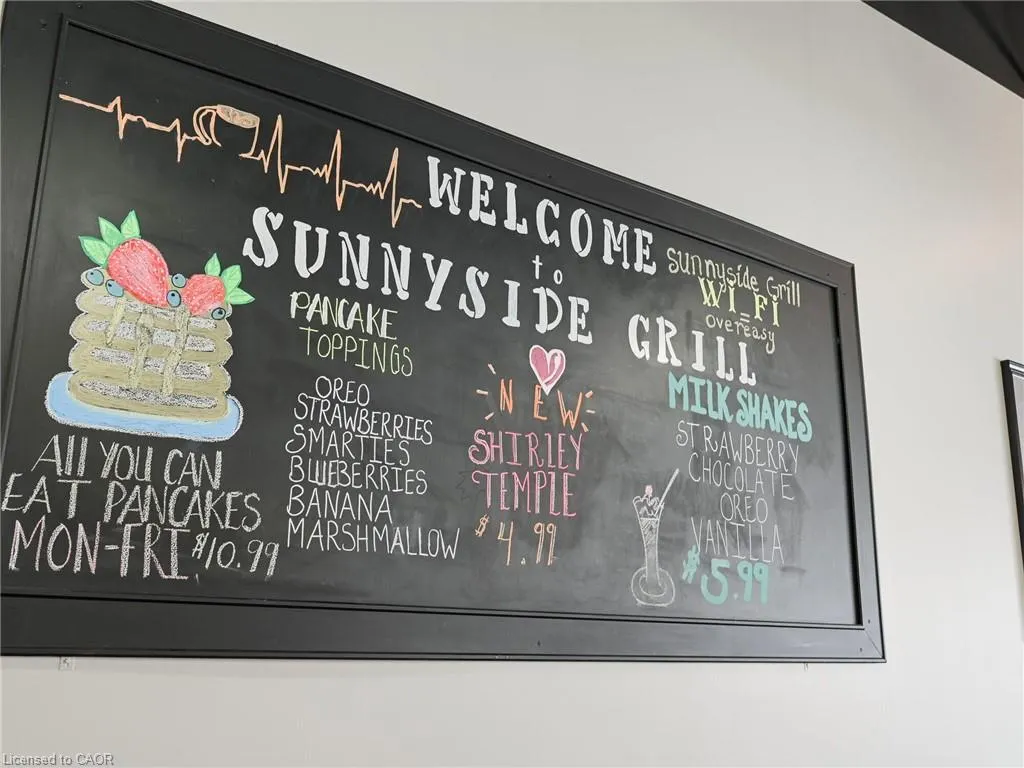 WELCOME
to
SUNNYSIDE GRILL
sunnyside Grill
WI-FI
overeasy
PANCAKE
TOPPINGS
OREO
STRAWBERRIES
SMARTIES
BLUEBERRIES
BANANA
MARSHMALLOW
All YOU CAN
EAT PANCAKES
MON-FRI $10.99
NEW
SHIRLEY
TEMPLE
$4.99
MILKSHAKES
STRAWBERRY
CHOCOLATE
OREO
VANILLA
$5.99
Licensed to CAOR